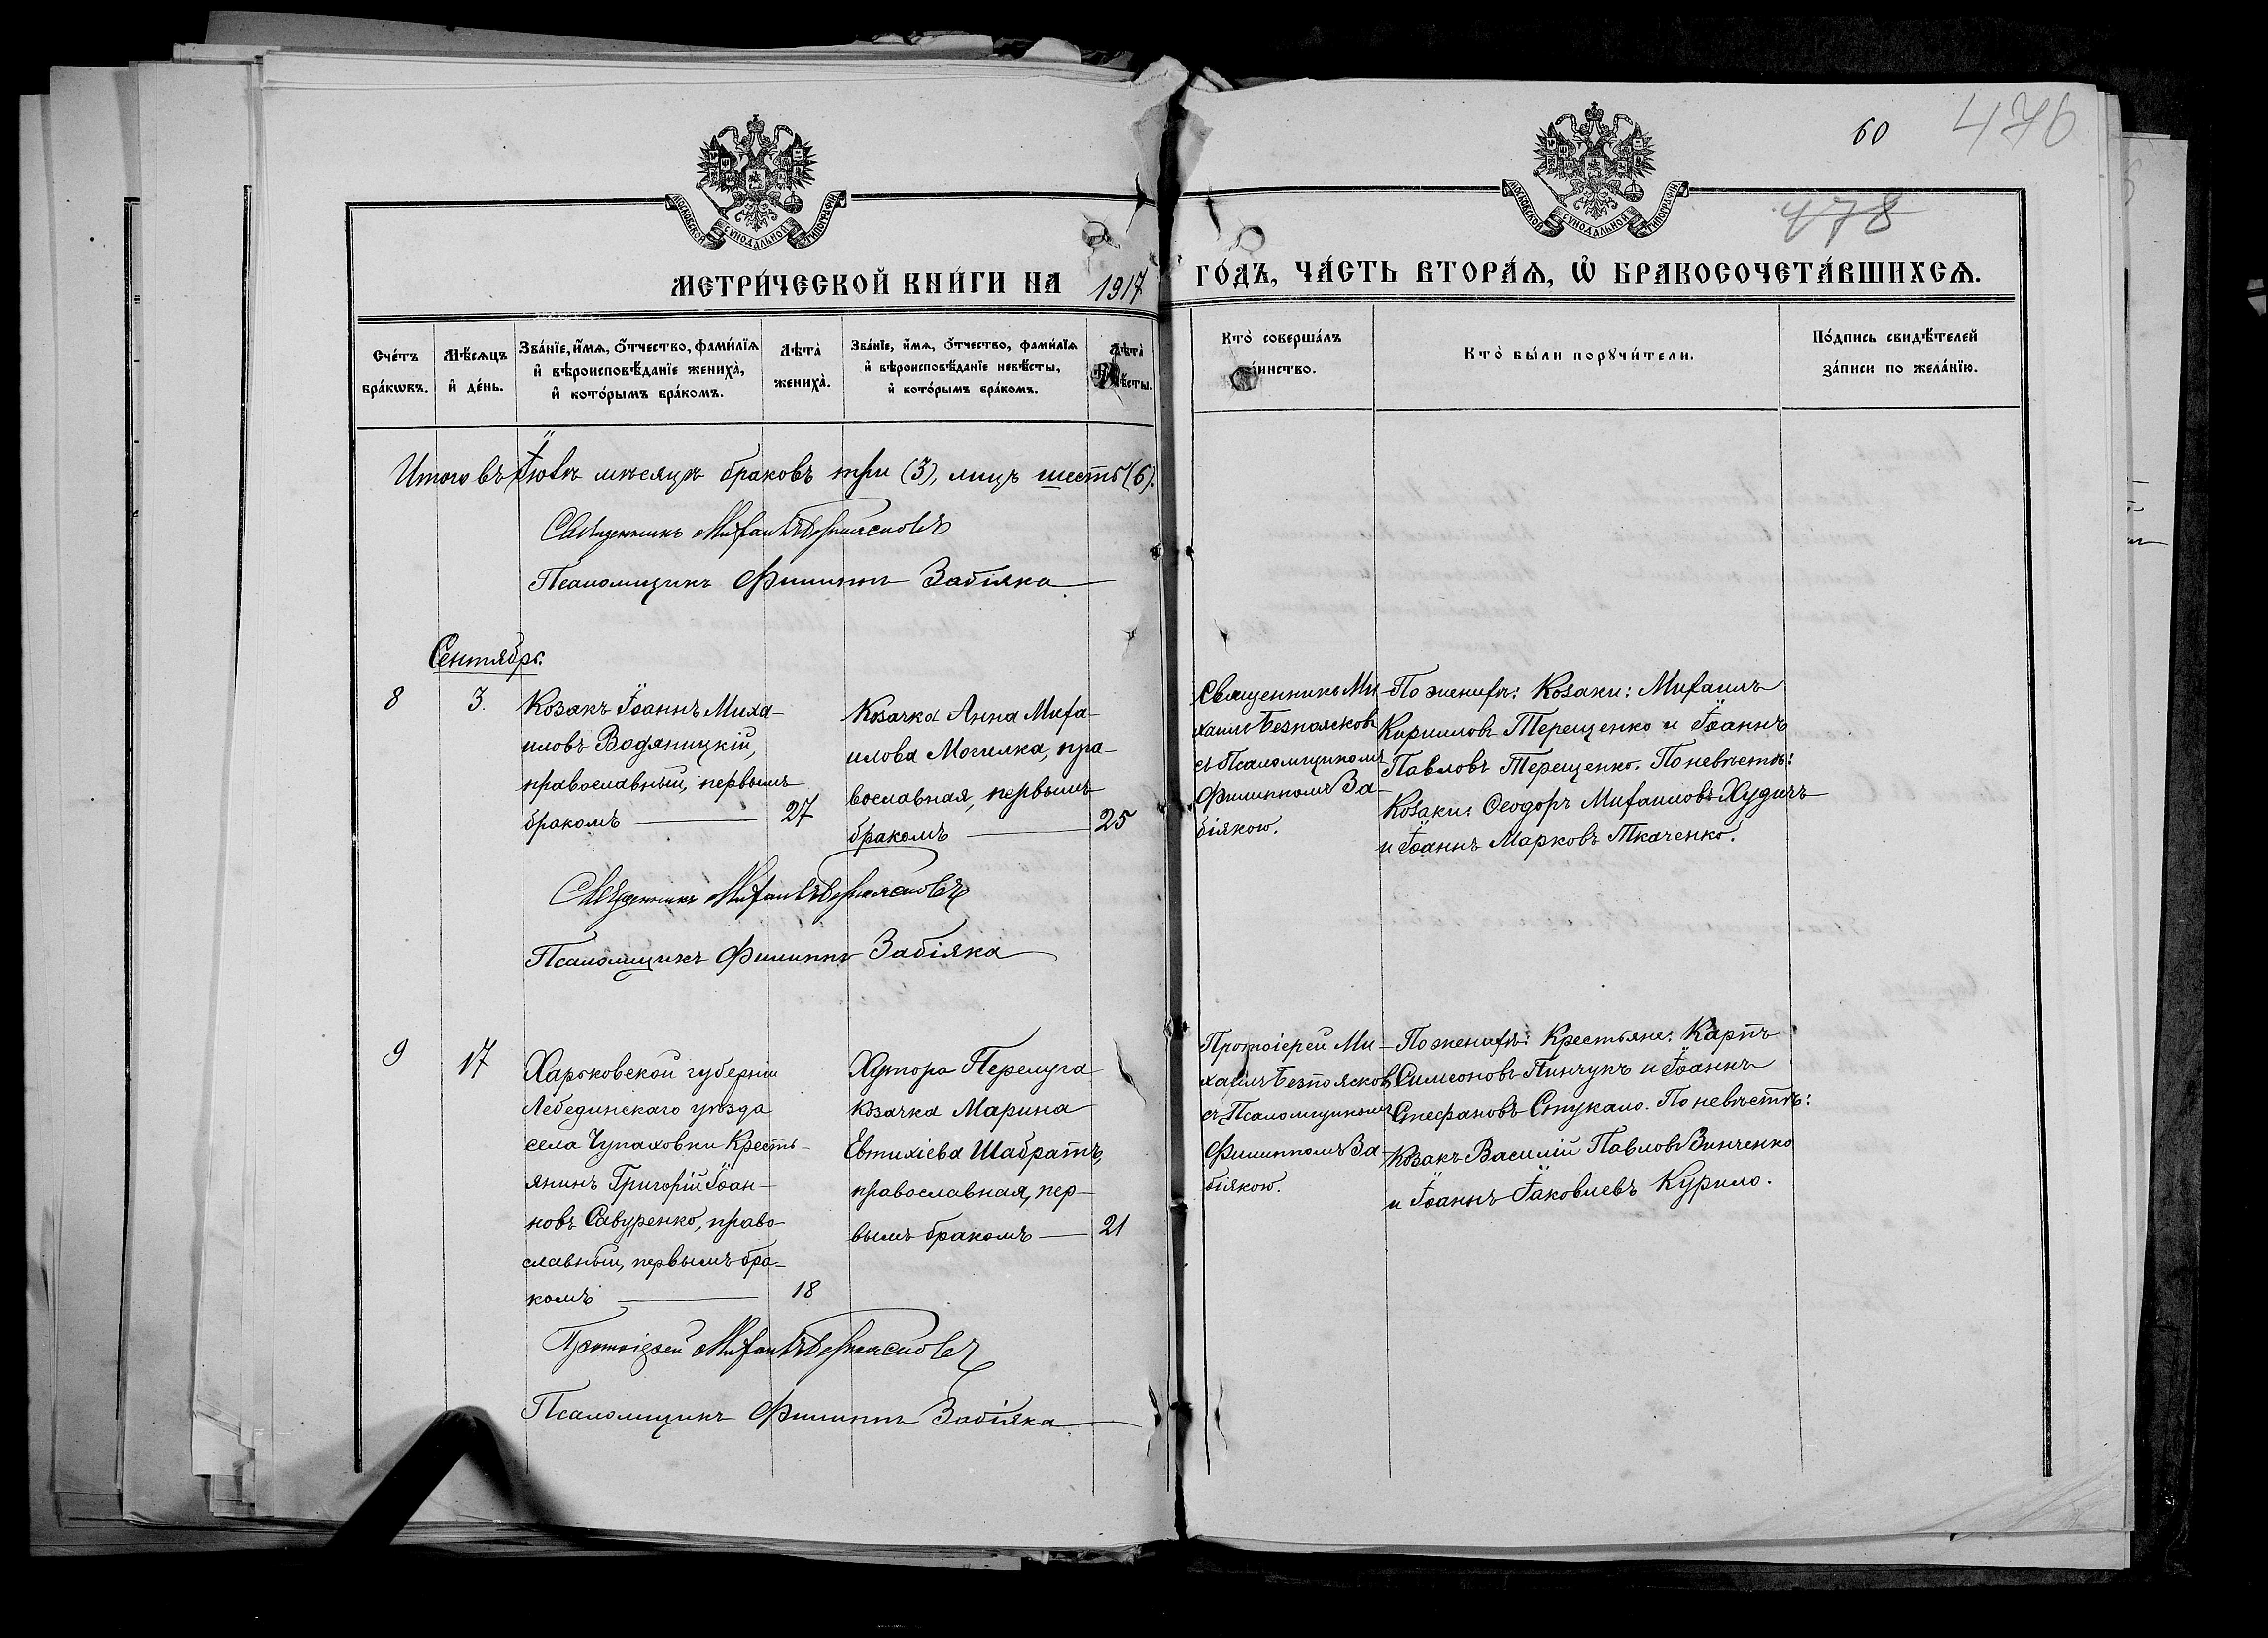 60
476
478
МОСКОВСКОЙ СѴНОДАЛЬНОЙ ТИПОГРАФІИ
МОСКОВСКОЙ СѴНОДАЛЬНОЙ ТИПОГРАФІИ
МЕТРИ́ЧЕСКОЙ КНИ́ГИ НА 1917 ГО́ДЪ, ЧА́СТЬ ВТОРА́Ѧ, Ѡ҆ БРАКОСОЧЕТА́ВШИХСѦ.
Сче́тъ
бра́кѡвъ.
Мѣ́сѧцъ
и҆ де́нь.
Зва́нїе, и҆́мѧ, ѻ҆́тчество, фами́лїѧ
и҆ вѣроисповѣ́данїе жениха̀,
и҆ кото́рымъ бра́комъ.
Лѣта̀
жениха̀.
Зва́нїе, и҆́мѧ, ѻ҆́тчество, фами́лїѧ
и҆ вѣроисповѣ́данїе невѣ́сты,
и҆ кото́рымъ бра́комъ.
Лѣта̀
Кто̀ соверша́лъ
Кто̀ бы́ли порꙋчи́тели.
По́дпись свидѣ́телей
за́писи по жела́нїю.
Итого въ Іюлѣ мѣсяцѣ браковъ три (3), лицъ шесть (6).
Священникъ Михаилъ Безпоясковъ
Псаломщикъ Филиппъ Забіяка
Сентябрь.
8
3.
Козакъ Іоаннъ Миха-
иловъ Водяницкій,
православный, первымъ
бракомъ — 27
Козачка Анна Миха-
илова Могилка, пра-
вославная, первымъ
бракомъ — 25
Священникъ Ми-
хаилъ Безпоясковъ
съ Псаломщикомъ
Филиппомъ За-
біякою.
По женихѣ: Козаки: Михаилъ
Кирилловъ Терещенко и Іоаннъ
Павловъ Терещенко. По невѣстѣ:
Козаки: Ѳеодоръ Михаиловъ Худичъ
и Іоаннъ Марковъ Ткаченко.
Священникъ Михаилъ Безпоясковъ
Псаломщикъ Филиппъ Забіяка
9
17
Харьковской губерніи
Лебединскаго уѣзда
села Чупаховки Кресть-
янинъ Григорій Іоан-
новъ Савуренко, право-
славный, первымъ бра-
комъ — 18
Хутора Перелуга
Козачка Марина
Евтихіева Шабратъ,
православная, пер-
вымъ бракомъ — 21
Протоіерей Ми-
хаилъ Безпоясковъ
съ Псаломщикомъ
Филиппомъ За-
біякою.
По женихѣ: Крестьяне: Карпъ
Симеоновъ Пинчукъ и Іоаннъ
Стефановъ Стукало. По невѣстѣ:
Козакъ Василій Павловъ Винченко
и Іоаннъ Іаковлевъ Курило.
Протоіерей Михаилъ Безпоясковъ
Псаломщикъ Филиппъ Забіяка